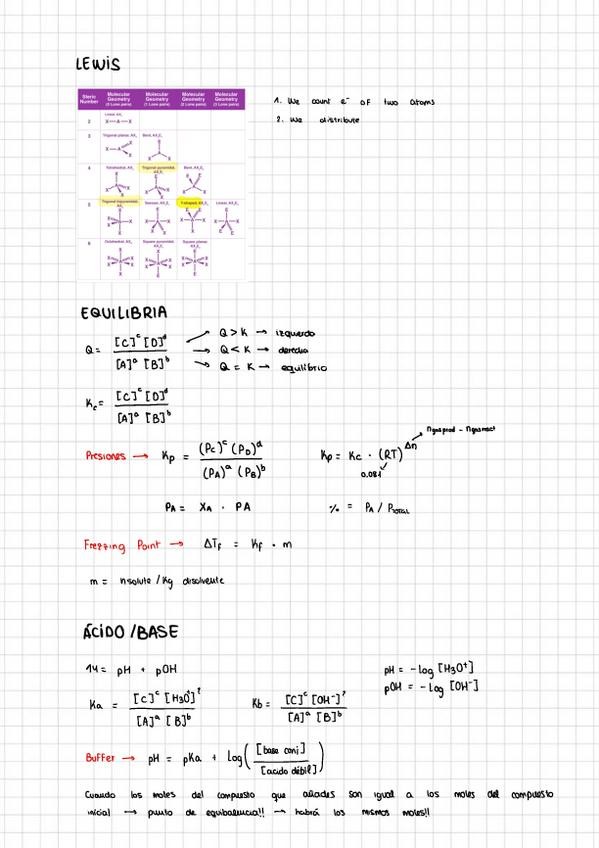 LEWIS
Steric Number Molecular Geometry (0 Lone pairs) Molecular Geometry (1 Lone pair) Molecular Geometry (2 Lone pairs) Molecular Geometry (3 Lone pairs)
1. We count e⁻ of two atoms
2. We distribute
2 Linear, AX₂
X—A—X
3 Trigonal planar, AX₃ Bent, AX₂E₁
4 Tetrahedral, AX₄ Trigonal pyramidal, AX₃E₁ Bent, AX₂E₂
5 Trigonal bipyramidal, AX₅ Seesaw, AX₄E₁ T-shaped, AX₃E₂ Linear, AX₂E₃
6 Octahedral, AX₆ Square pyramidal, AX₅E₁ Square planar, AX₄E₂
EQUILIBRIA
Q = [C]ᶜ [D]ᵈ / [A]ᵃ [B]ᵇ
Q > K → izquierda
Q < K → derecha
Q = K → equilibrio
Kc = [C]ᶜ [D]ᵈ / [A]ᵃ [B]ᵇ
Presiones → Kp = (Pc)ᶜ (PD)ᵈ / (PA)ᵃ (PB)ᵇ
Kp = Kc · (RT)^Δn → ngasprod - ngasreact
0.081
PA = XA · PA
% = PA / PTOTAL
Frezzing Point → ΔTf = Kf · m
m = nsolute / Kg disolvente
ÁCIDO / BASE
14 = pH + pOH
pH = - log [H3O⁺]
pOH = - log [OH⁻]
Ka = [C]ᶜ [H3O⁺]^? / [A]ᵃ [B]ᵇ
Kb = [C]ᶜ [OH⁻]^? / [A]ᵃ [B]ᵇ
Buffer → pH = pKa + log ([base conj] / [acido débil])
Cuando los moles del compuesto que añades son igual a los moles del compuesto
inicial → punto de equibalencia!! → habrá los mismos moles!!